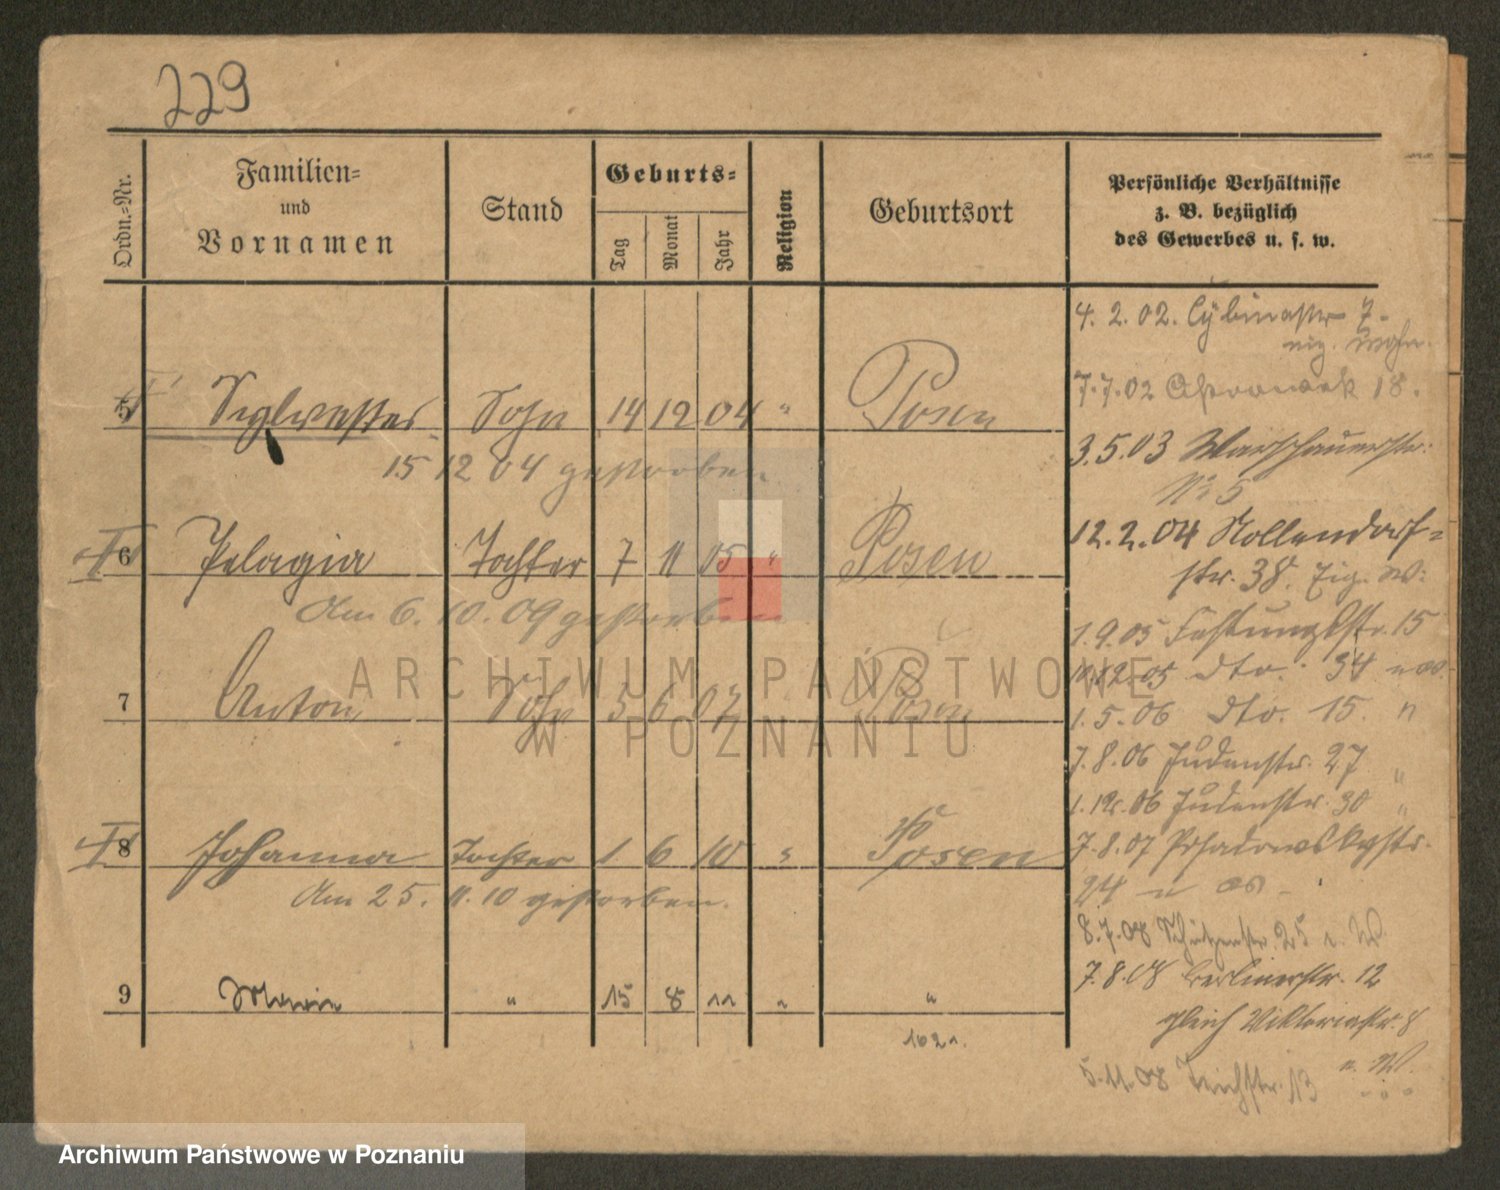 229
Ordn.=Nr.
Familien=
und
Vornamen
Stand
Geburts=
Tag
Monat
Jahr
Religion
Geburtsort
Persönliche Verhältnisse
z. B. bezüglich
des Gewerbes u. s. w.
4. 2. 02. Cybinastr 7.
wohn.
7.7.02 Ostrowek 18.
5 Sylvester Sohn 14 12 04 " Posen
3.5.03 Warschauerstr.
15 12 04 gestorben
№ 5
12.2.04 Nollendorf=
6 Pelagia Tochter 7 11 05 " Posen
str. 38. Eig. W.
Am 6. 10. 09 gestorben
1.9.05 Festungsstr. 15
12.05 dto. 34
7 Anton Sohn 5 6 07 Posen
1.5.06 dto. 15. n
7.8.06 Judenstr. 27 "
1.12.06 Judenstr. 30 "
8 Johanna Tochter 1 6 10 " Posen
7.8.07 Posadowskystr.
24
Am 25. 11. 10 gestorben.
8.7.08 Schützenstr. 25 n. W.
7.8.08 Berlinerstr. 12
9 Marie " 15 8 11 " "
gleich Viktoriastr. 8
n. W.
5.11.08 Teichstr. 13
ARCHIWUM PAŃSTWOWE
W POZNANIU
Archiwum Państwowe w Poznaniu